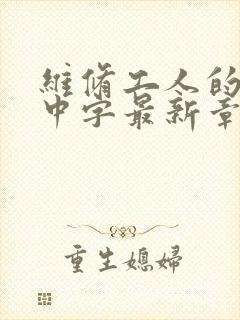 維脩工人的
中字最新章
重生媳婦